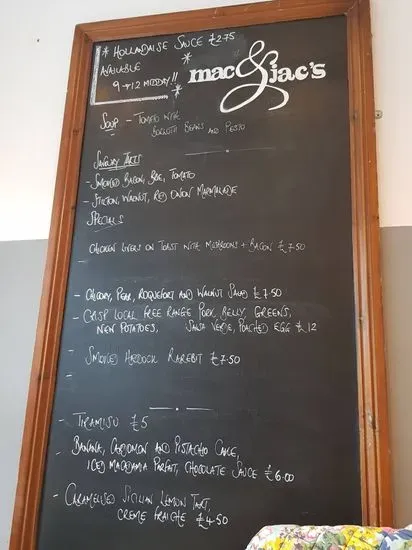 * HOLLANDAISE SAUCE £2.75
AVAILABLE
9 → 12 MIDDAY!!
*
mac & jac's
SOUP - TOMATO WITH
BORLOTTI BEANS AND PESTO
SAVOURY TARTS
- SMOKED BACON, BRIE, TOMATO
- STILTON, WALNUT, RED ONION MARMALADE
SPECIALS
CHICKEN LIVERS ON TOAST WITH MUSHROOMS + BACON £7.50
-
- CHICORY, PEAR, ROQUEFORT AND WALNUT SALAD £7.50
- CRISP LOCAL FREE RANGE PORK BELLY, GREENS,
NEW POTATOES, SALSA VERDE, POACHED EGG £12
- SMOKED HADDOCK RAREBIT £7.50
-
- TIRAMISU £5
- BANANA, CARDOMON AND PISTACHIO CAKE,
ICED MACADAMIA PARFAIT, CHOCOLATE SAUCE £6.00
- CARAMELISED SICILIAN LEMON TART,
CREME FRAICHE £4.50